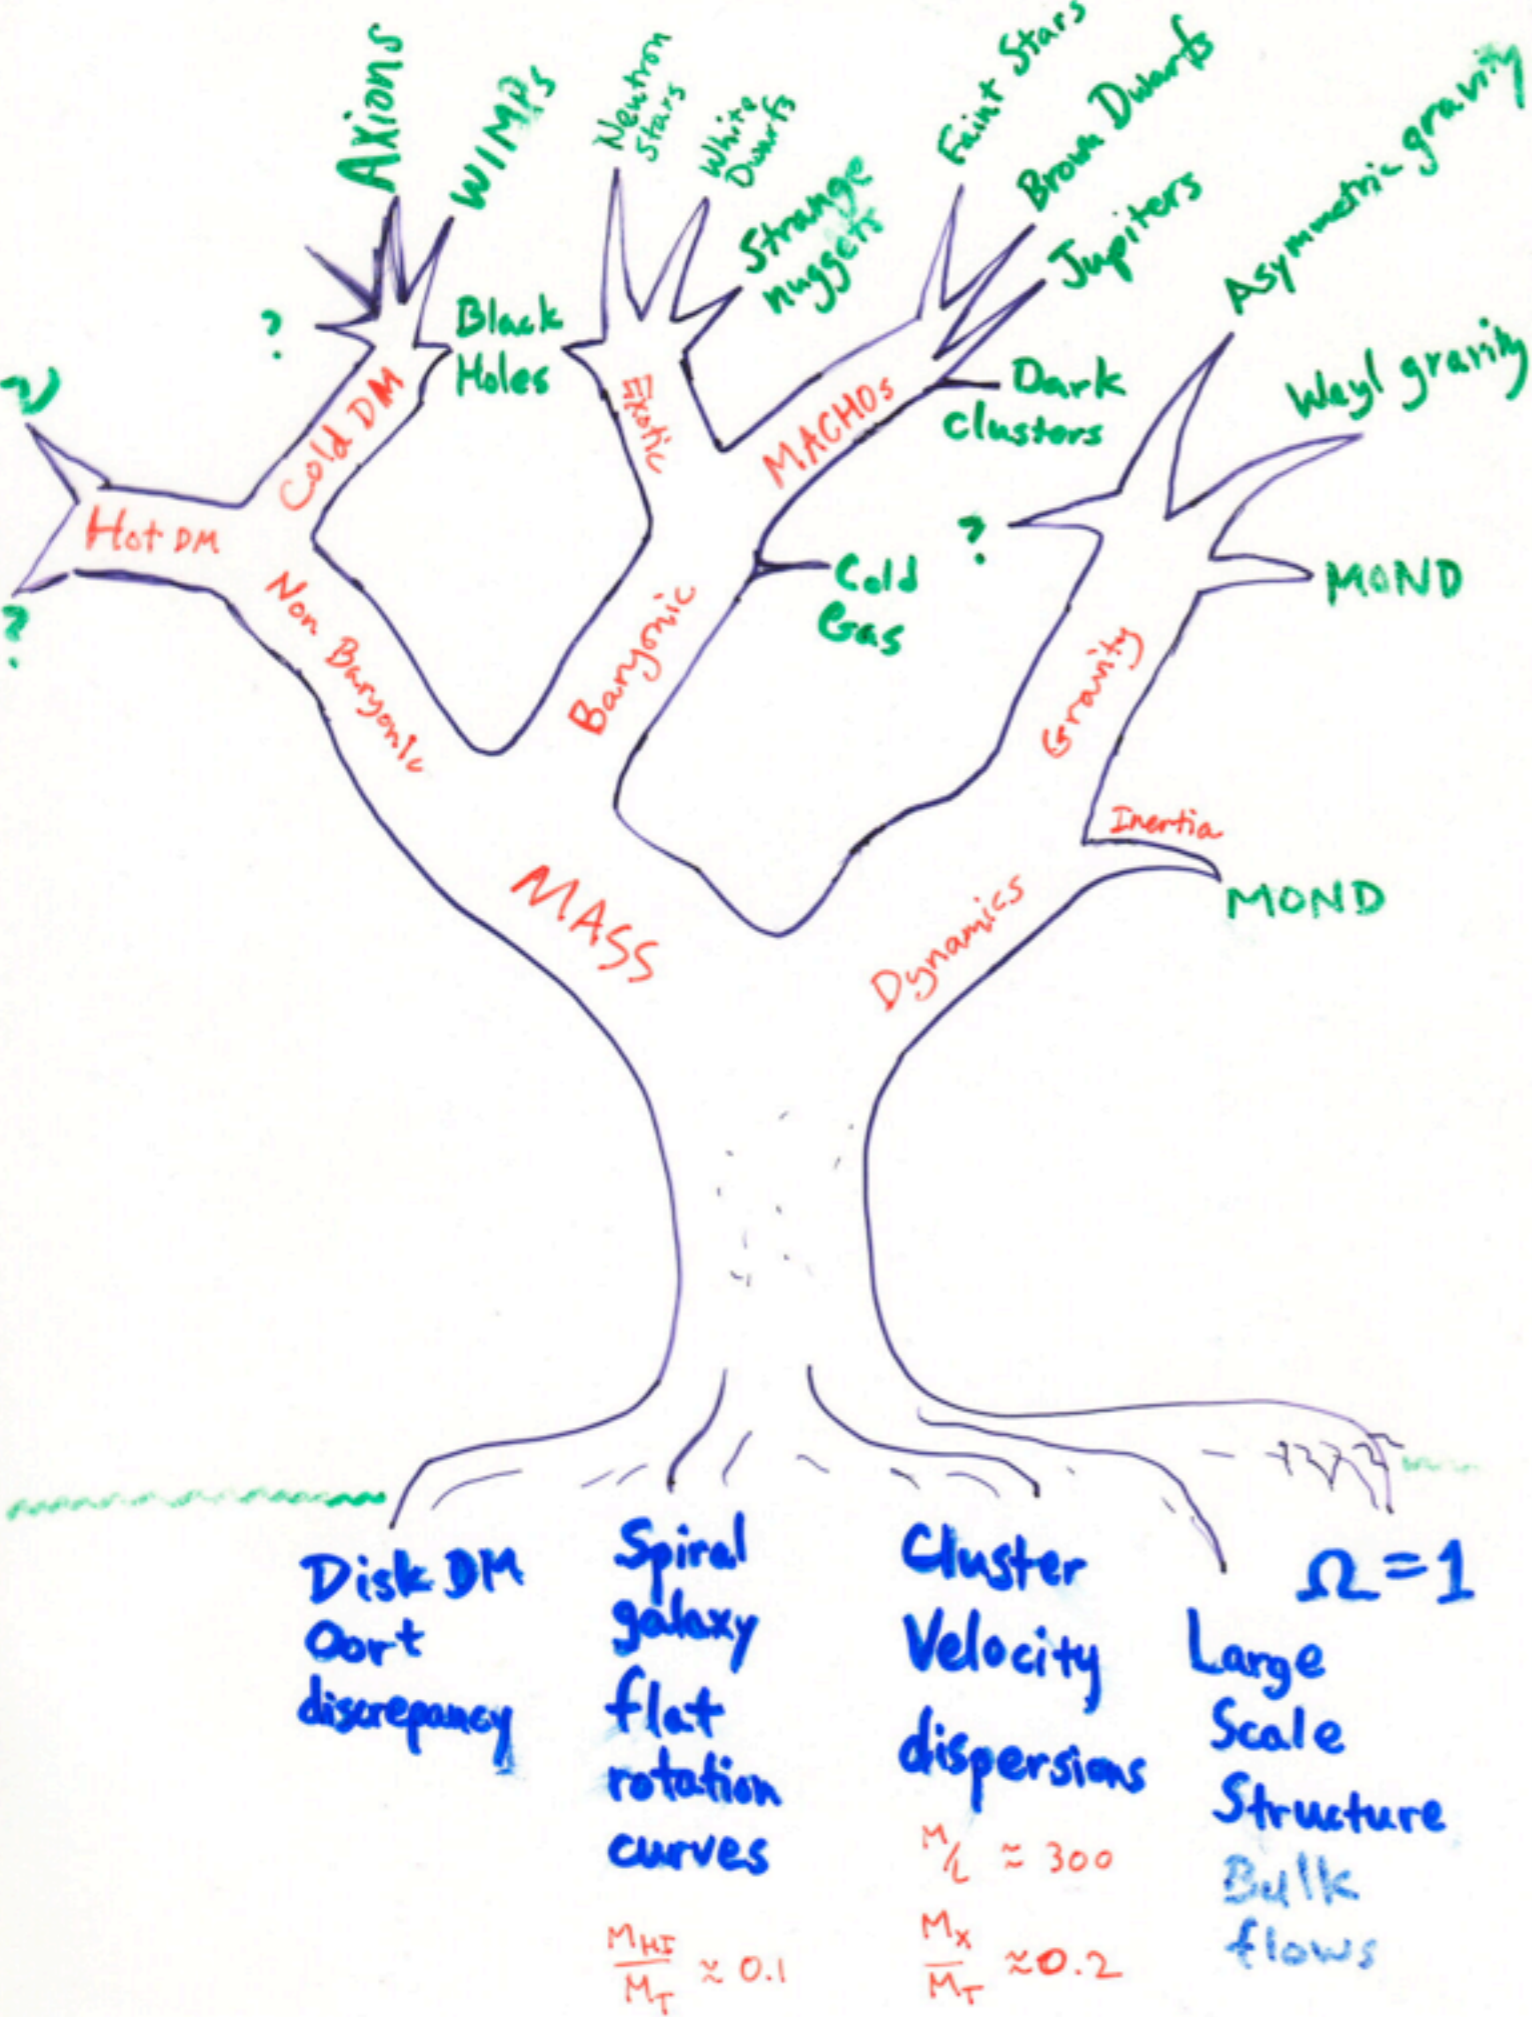 Axions
WIMPs
Neutron
Stars
White
Dwarfs
Strange
nuggets
Faint Stars
Brown Dwarfs
Jupiters
Asymmetric gravity
Weyl gravity
?
Black
Holes
ν
Cold DM
Exotic
MACHOs
Dark
clusters
Hot DM
?
?
Cold
Gas
MOND
Non Baryonic
Baryonic
Gravity
Inertia
MOND
MASS
Dynamics
Disk DM
Oort
discrepancy
Spiral
galaxy
flat
rotation
curves
M_HI/M_T ≈ 0.1
Cluster
Velocity
dispersions
M/L ≈ 300
M_X/M_T ≈ 0.2
Ω = 1
Large
Scale
Structure
Bulk
flows